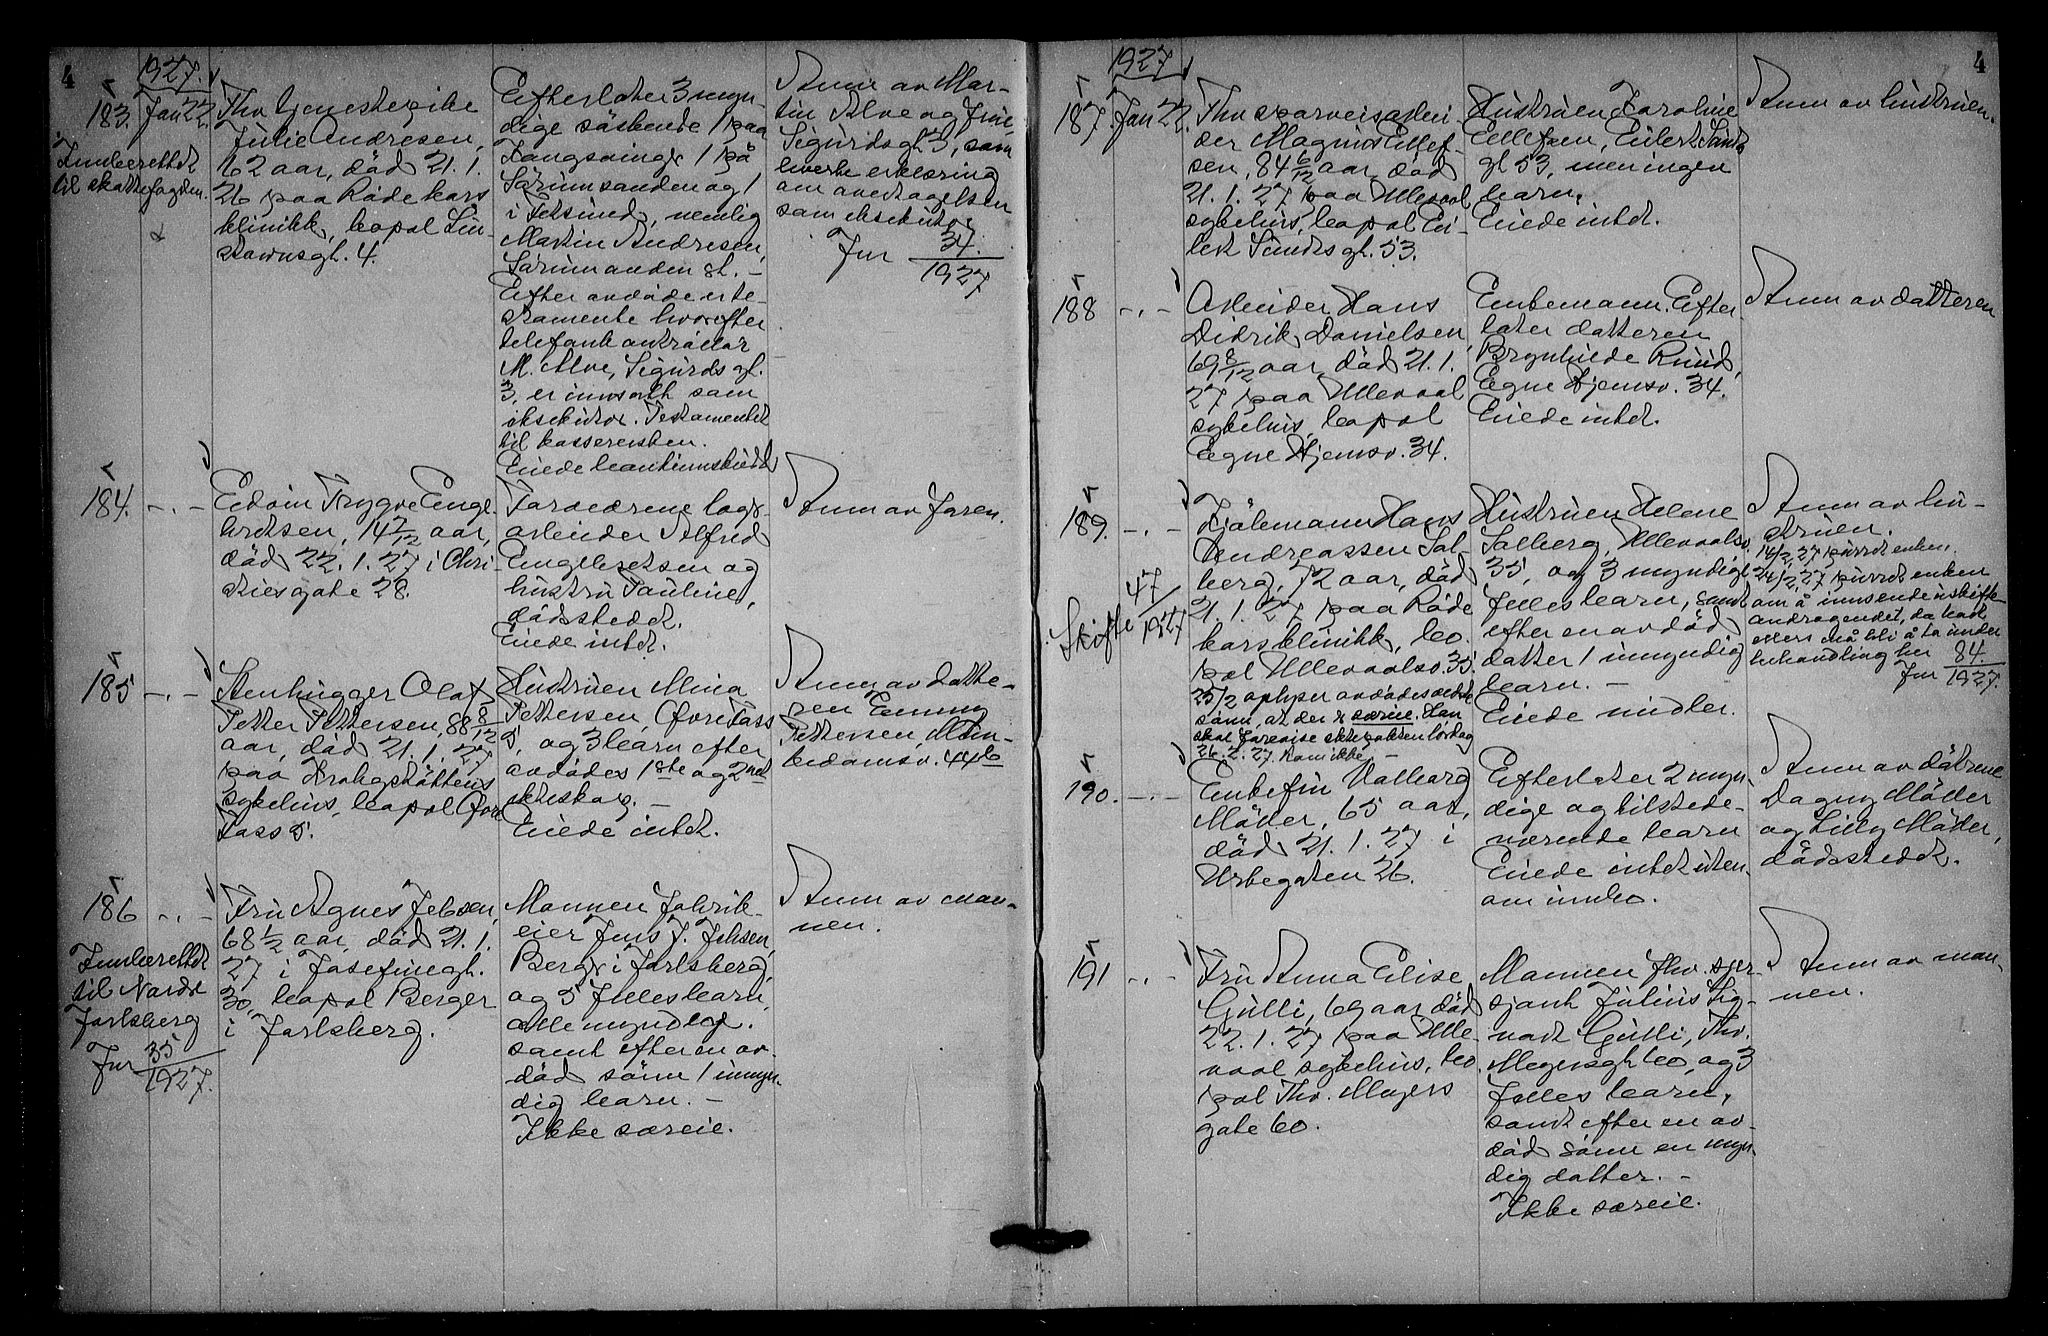 4
1927.
183. Jan 22.
Innberettet
til skattefogden.
Fhv tjenestepike
Julie Andresen,
62 aar, död 21.1.
26 paa Röde kors
klinikk, bopal Lin-
stowsgt. 4.
Efterlater 3 myn-
dige söskende 1 paa
1 på
Sörumsanden og 1
i Fetsund, nemlig
Martin Andresen,
Sörumsanden st. –
Efter avdöde er te-
stamente hvorefter
telefonkontrollör
M. Alve, Sigurds gt.
3, er innsatt som
eksekutor. Testamentet
til kassereren.
Anm av Mar-
tin Alve og frue,
Sigurdsgt 3, som
hverke erklæring
om avedtagelsen
som eksekutor
Jnr 34
1927
184. -.-
Edvin Trygve Enge-
bretsen, 14 7/12 aar,
död 22.1.27 i Chri-
stiesgate 28.
Forældrene lagr.
arbeider Alfred
Engebretsen og
hustru Pauline,
dödsstedet.
Eiede intet.
Anm av faren.
185 -.-
Stenhugger Olaf
Petter Pettersen, 88 8/12
aar, död 21.1.27
paa Krohgstöttens
sykehus, bopal Övre
Foss 5.
Hustruen Mina
Pettersen, Övre Foss
5, og 3 barn efter
avdödes 1ste og 2net
ekteskap. –
Eiede intet.
Anm av datte-
ren Emmy
Pettersen, Mun-
kedamsv. 44b
186 -.-
Innberettet
til Nordre
Jarlsberg
Jnr 35
1927.
Fru Agnes Jebsen,
68 1/2 aar, död 21.1.
27 i Josefinegt.
30, bopal Berger
i Jarlsberg.
Mannen fabrik-
eier Jens J. Jebsen,
Berger i Jarlsberg,
og 5 fellesbarn,
alle myndige.
samt efter en av-
död sönn 1 umyn-
dig barn. –
Ikke særeie.
Anm av man-
nen.
4
1927
187. Jan 22.
Fhv sporveisarbei-
der Magnus Ellef-
sen, 84 6/12 aar, död
21.1.27 paa Ullevaal
sykehus, bopal Ei-
lert Sundts gt. 53.
Hustruen Karoline
Ellefsen, Eilert Sundts
gt 53, men ingen
barn.
Eiede intet.
Anm av hustruen.
188 -.-
Arbeider Hans
Didrik Danielsen,
69 8/12 aar, död 21.1.
27 paa Ullevaal
sykehus, bopal
Egne Hjemsv. 34.
Enkemann. Efter-
later datteren
Brynhilde Ruud,
Egne Hjemsv. 34.
Eiede intet.
Anm av datteren
189. -.-
Skifte 47
1927
Hans
Andreassen Sol-
berg, 72 aar, död
21.1.27 paa Röde
kors klinikk, bo-
pal Ullevaalsv. 35
25/2 oplyser avdödes ældste
sönn, at der er særeie. Han
skal forevise ektepakten lördag
26.2.27. Kom ikke. –
Hustruen Helene
Solberg, Ullevaalsv.
35, og 3 myndige
fellesbarn, samt
efter en avdöd
datter 1 umyndig
barn. –
Eiede midler.
Anm av hu-
struen.
14/2.27 purret enken.
24/2.27 purret enken
om å innsende skifte-
andragendet, da boet
ellers må bli å ta under
behandling her
Jnr 84.
1927.
190. -.-
Enkefru Valborg
Möder, 65 aar,
död 21.1.27 i
Urbegaten 26.
Efterlater 2 myn-
dige og tilstede-
værende barn
Eiede intet uten-
om innbo.
Anm av dötrene
Dagny Möder
og Lilly Möder,
dödsstedet.
191 -.-
Fru Anna Elise
Gulli, 69 aar, död
22.1.27 paa Ulle-
vaal sykehus, bo-
pal Thv. Meyers
gate 60.
Mannen fhv. ser-
sjant Julius Sig-
vart Gulli, Thv.
Meyersgt 60, og 3
felles barn,
samt efter en av-
död sönn en myn-
dig datter. –
Ikke særeie.
Anm av man-
nen.